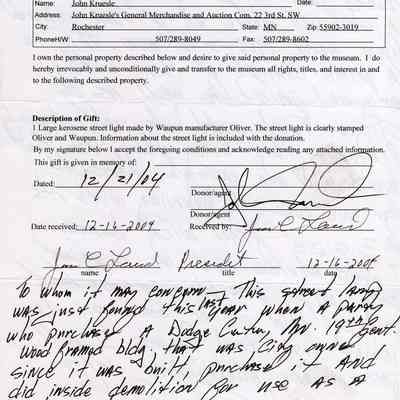 Name: John Kruesle Date:
Address: John Kruesle's General Merchandise and Auction Com. 22 3rd St. SW
City Rochester State: MN Zip 55902-3019
Phone H/W 507/289-8049 Fax: 507/289-8602
I own the personal property described below and desire to give said personal property to the museum. I do
hereby irrevocably and unconditionally give and transfer to the museum all rights, titles, and interest in and
to the following described property.
Description of Gift:
1 Large kerosene street light made by Waupun manufacturer Oliver. The street light is clearly stamped
Oliver and Waupun. Information about the street light is included with the donation.
By my signature below I accept the foregoing conditions and acknowledge reading any attached information.
This gift is given in memory of:
Dated: 12/21/04
Donor/agent
Donor/agent
Date received: 12-16-2004 Received by: James C Laird
James C Laird President 12-16-2004
name title date
To whom it may concern - This street lamp
was just found this last year when a party
who purchase A Dodge Center, Mn. 19th Cent.
Wood framed bldg, that was City owned
since it was built, purchase it AND
did inside demolition for use as a